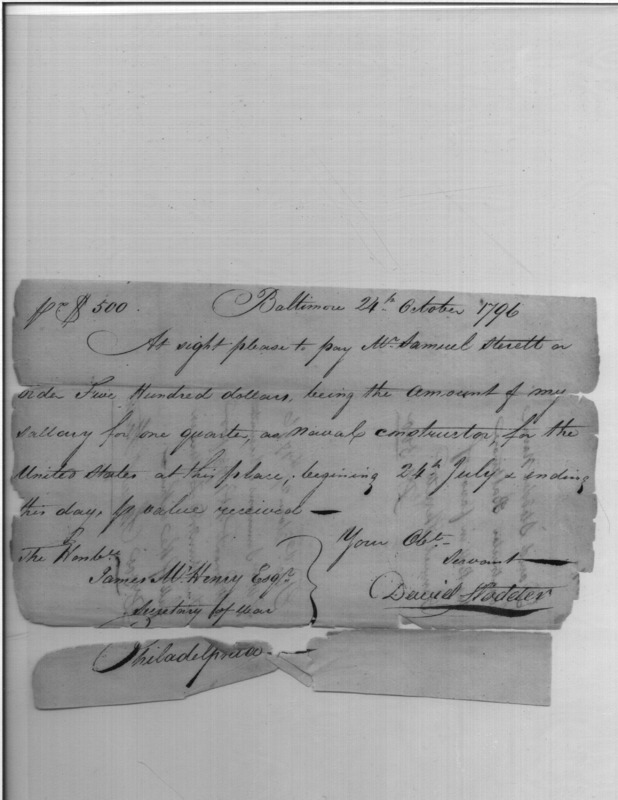 pr $ 500. Baltimore 24th October 1796
At sight please to pay Mr. Samuel Sterett or
order Five Hundred dollars, being the amount of my
sallery for one quarter, as naval constructor, for the
United States at this place, begining 24th July & ending
this day, for value received —
Your Obt.
Servant
David Stodder
The Honble
James McHenry Esqr.
Secretary of War
Philadelphia —